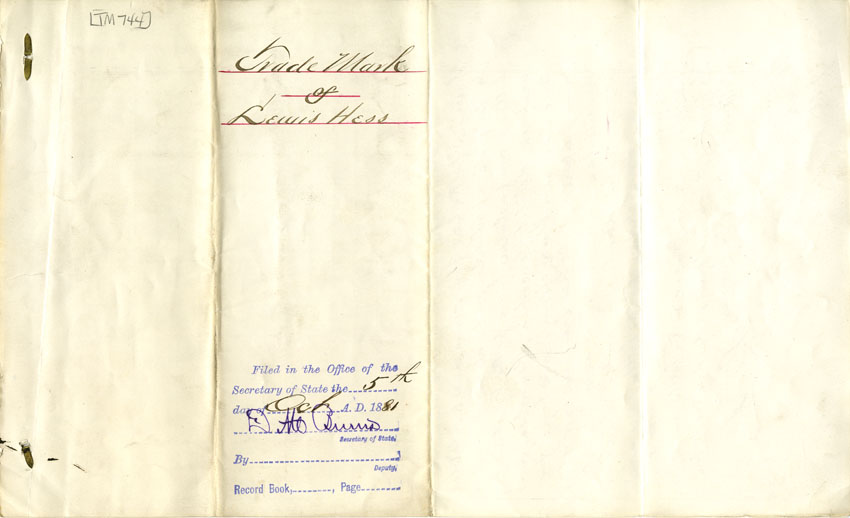 [TM744]
Trade Mark
of
Lewis Hess
Filed in the Office of the
Secretary of State the 5th
day of Oct A. D. 1881
Secretary of State,
By
Deputy,
Record Book, , Page